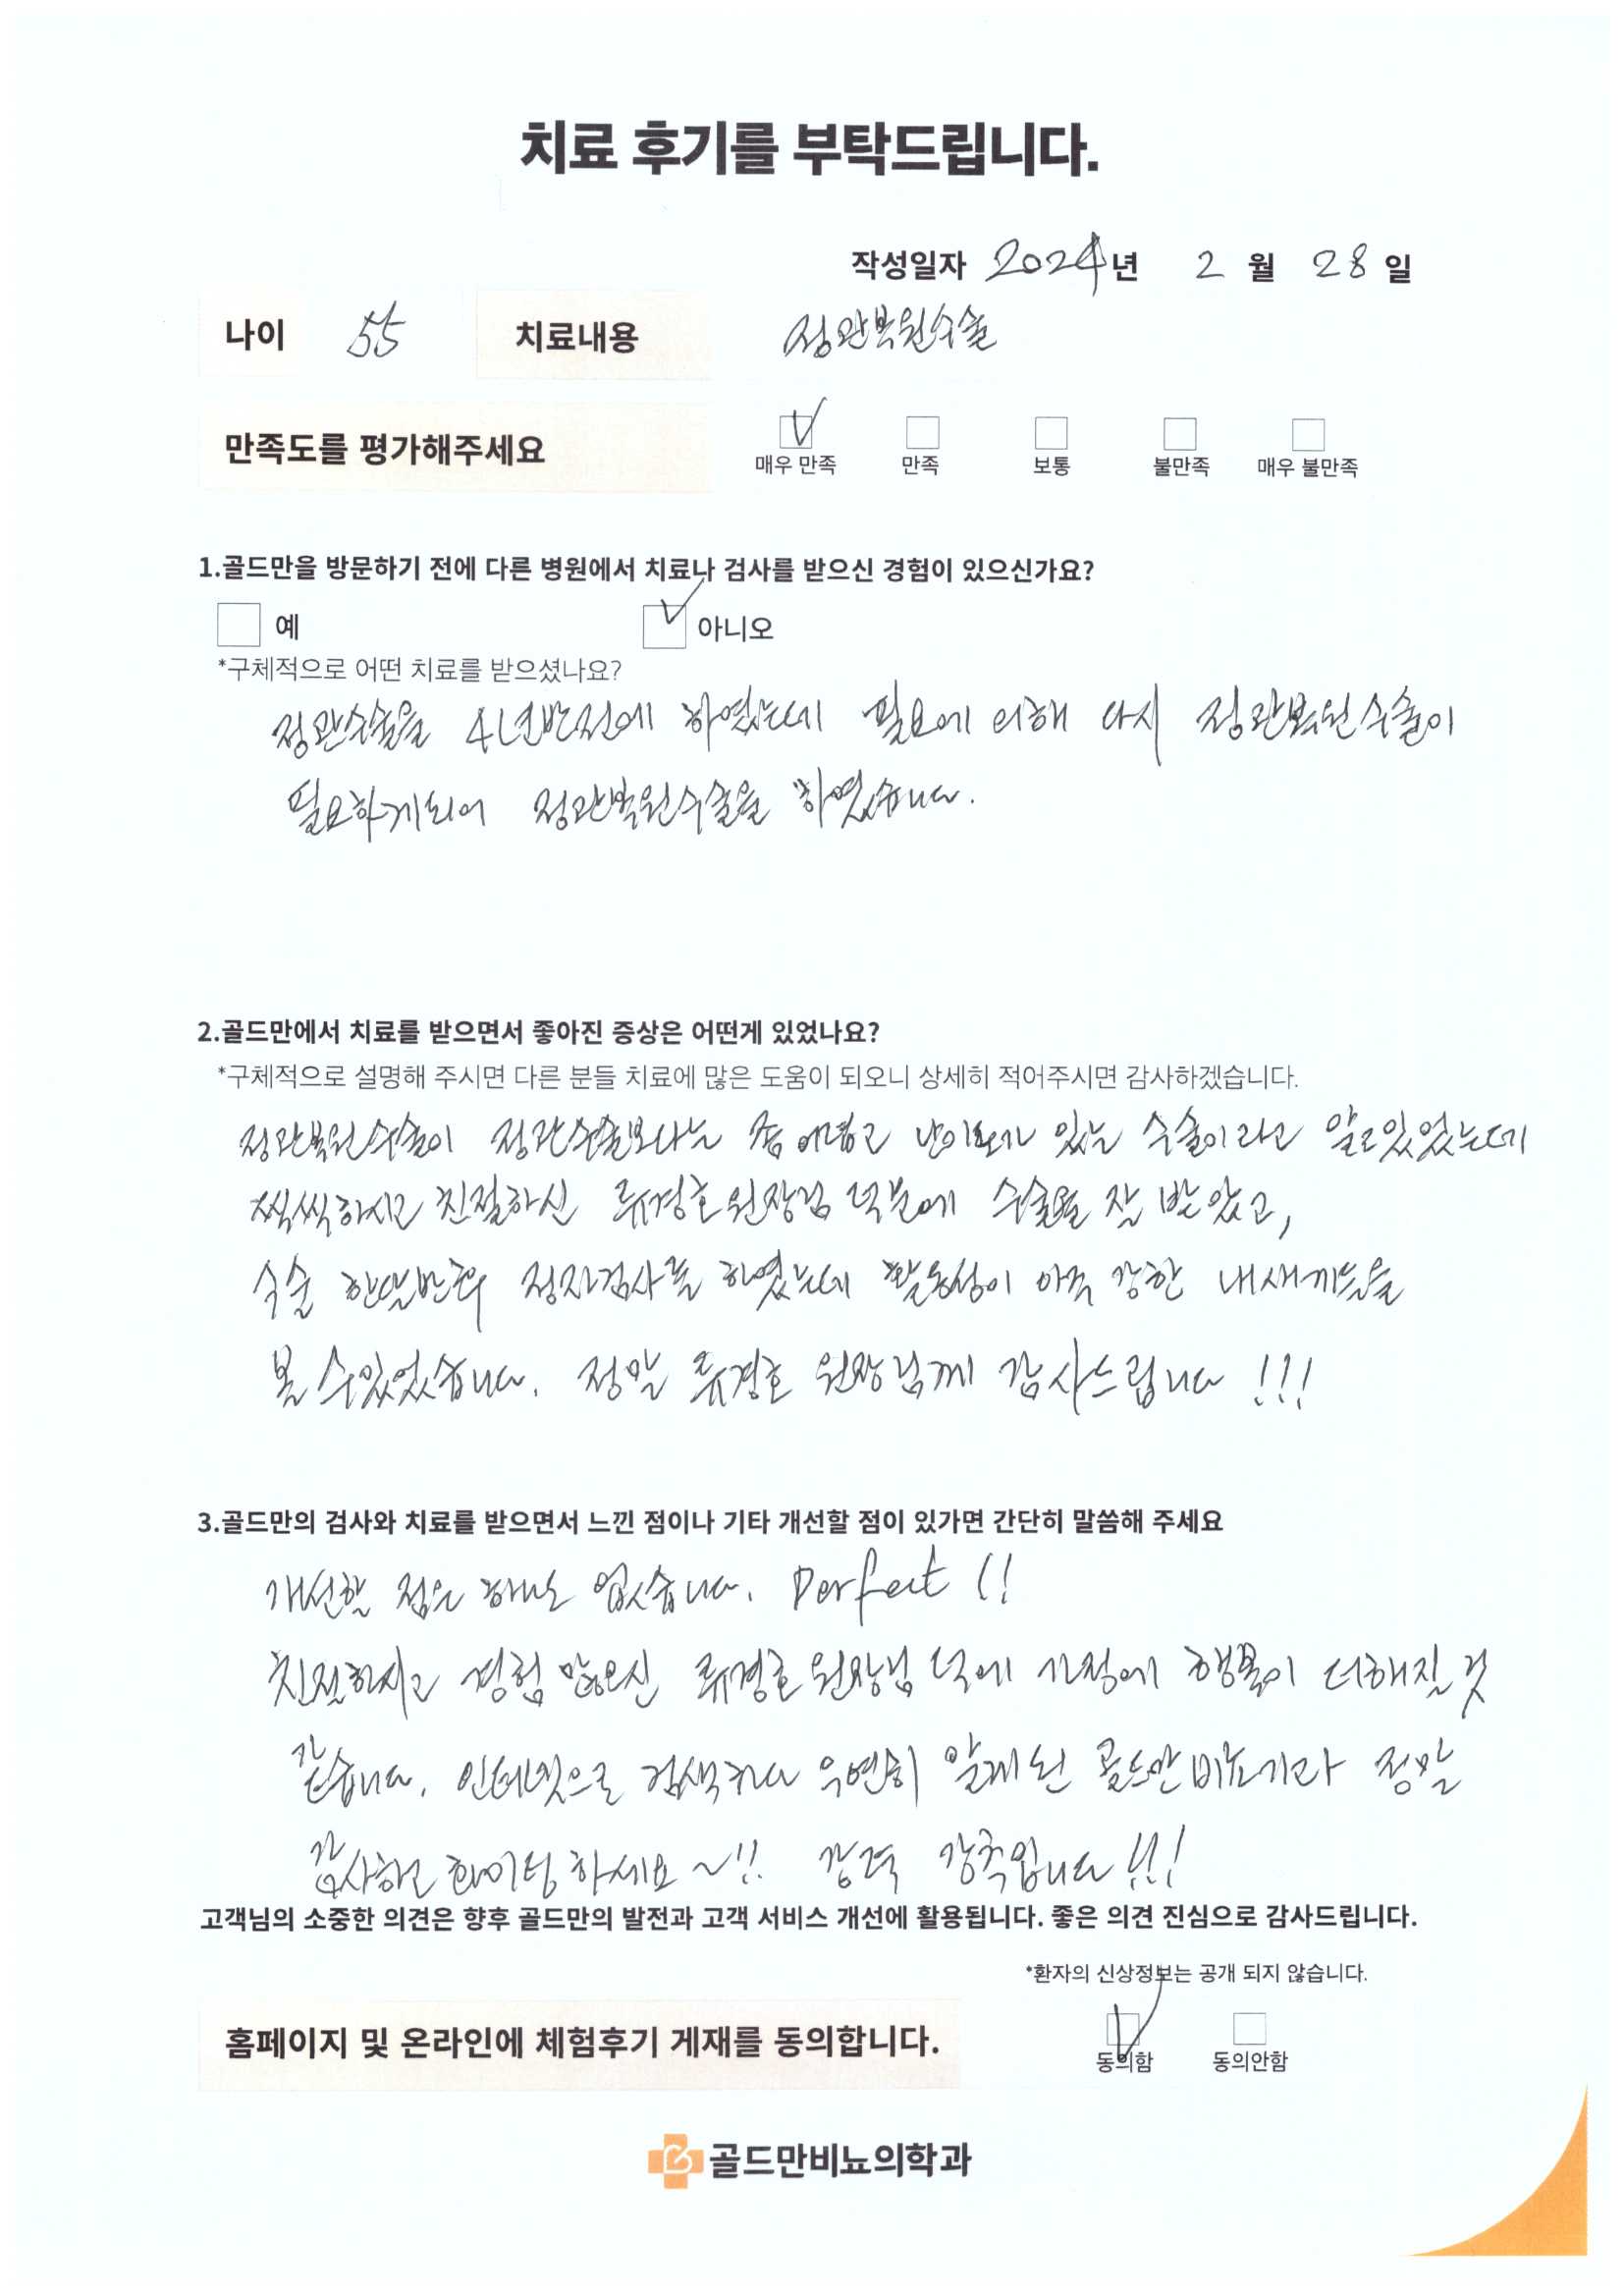 치료 후기를 부탁드립니다.
작성일자 2024년 2월 28일
나이 55 치료내용 정관복원수술
만족도를 평가해주세요
매우 만족 만족 보통 불만족 매우 불만족
1.골드만을 방문하기 전에 다른 병원에서 치료나 검사를 받으신 경험이 있으신가요?
예 아니오
*구체적으로 어떤 치료를 받으셨나요?
정관수술을 4년반전에 하였는데 필요에 의해 다시 정관복원수술이
필요하게되어 정관복원수술을 하였습니다.
2.골드만에서 치료를 받으면서 좋아진 증상은 어떤게 있었나요?
*구체적으로 설명해 주시면 다른 분들 치료에 많은 도움이 되오니 상세히 적어주시면 감사하겠습니다.
정관복원수술이 정관수술보다는 좀 어렵고 난이도가 있는 수술이라고 알고있었는데
씩씩하시고 친절하신 류경호 원장님 덕분에 수술을 잘 받았고,
수술 한달반후 정자검사를 하였는데 활동성이 아주 강한 내새끼들을
볼 수있었습니다. 정말 류경호 원장님께 감사드립니다 !!!
3.골드만의 검사와 치료를 받으면서 느낀 점이나 기타 개선할 점이 있가면 간단히 말씀해 주세요
개선할 점은 하나도 없습니다. Perfect !!
친절하시고 경험 많으신 류경호 원장님 덕에 가정에 행복이 더해질 것
같습니다. 인터넷으로 검색하다 우연히 알게된 골드만 비뇨기과 정말
감사하고 화이팅 하세요 ~!! 강력 강추입니다 !!!
고객님의 소중한 의견은 향후 골드만의 발전과 고객 서비스 개선에 활용됩니다. 좋은 의견 진심으로 감사드립니다.
*환자의 신상정보는 공개 되지 않습니다.
홈페이지 및 온라인에 체험후기 게재를 동의합니다.
동의함 동의안함
골드만비뇨의학과